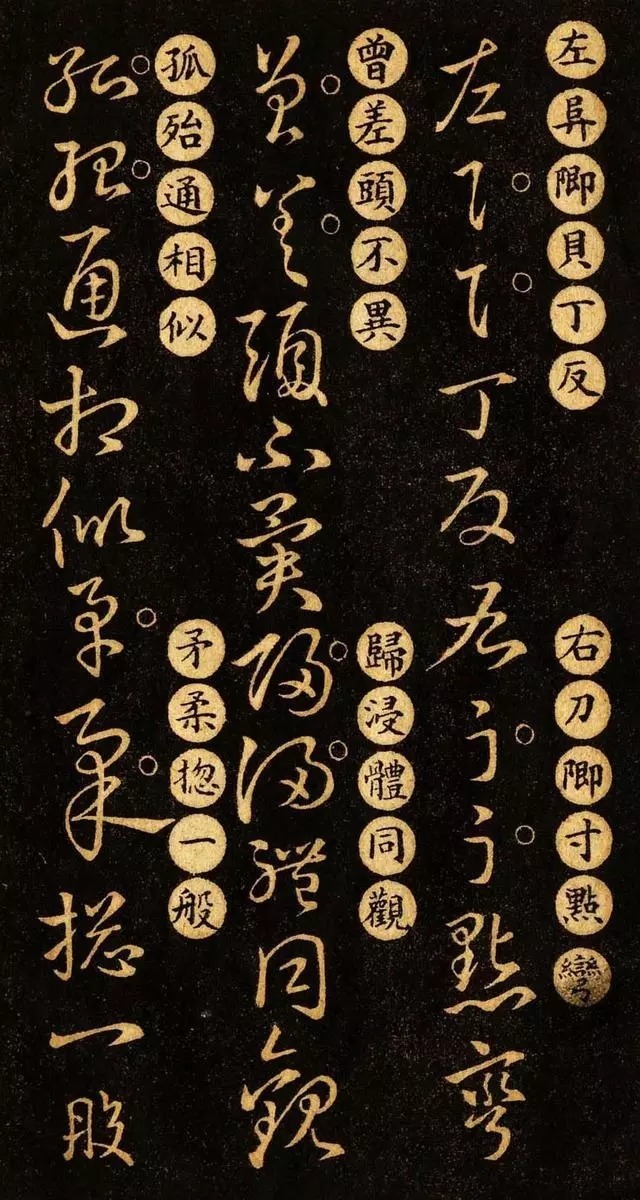 左阜貝丁反右刀寸點彎
左阜卽貝丁反
右刀卽寸點彎
曾差頭不異歸浸體同觀
曾差頭不異
歸浸體同觀
孤殆通相似矛柔揔一般
孤殆通相似
矛柔揔一般